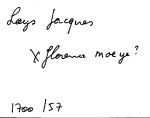 Loys Jacques
X florence moeye?
1700 /57